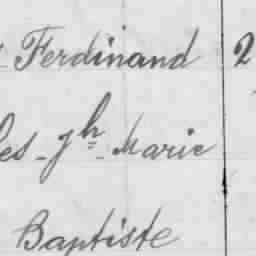 Ferdinand 2
les - Jh - Marie
Baptiste